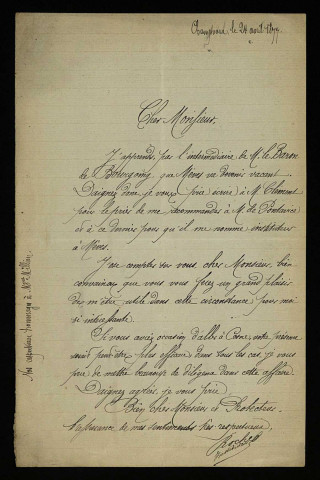 le 24 avril 1877
Cher Monsieur,
J'apprends, par l'intermédiaire de M. le Baron
de Bourgoing, que Mèves va devenir vacant.
Daignez donc, je vous prie écrire à M. Clément
pour le prier de me recommander à M. de
et à ce dernier pour qu'il me nomme instituteur
à Mèves.
J'ose compter sur vous, cher Monsieur, bien
convaincu que vous vous ferez un grand plaisir
de m'être utile dans cette circonstance pour moi
si intéressante.
Si vous aviez occasion d'aller à Cosne, votre présence
serait peut-être plus efficace; dans tous les cas, je vous
prie de mettre beaucoup de diligence dans cette affaire.
Daignez agréer, je vous prie,
Bien cher Monsieur et Protecteur,
l'assurance de mes sentiments très respectueux.
Mes respectueux hommages à Mme